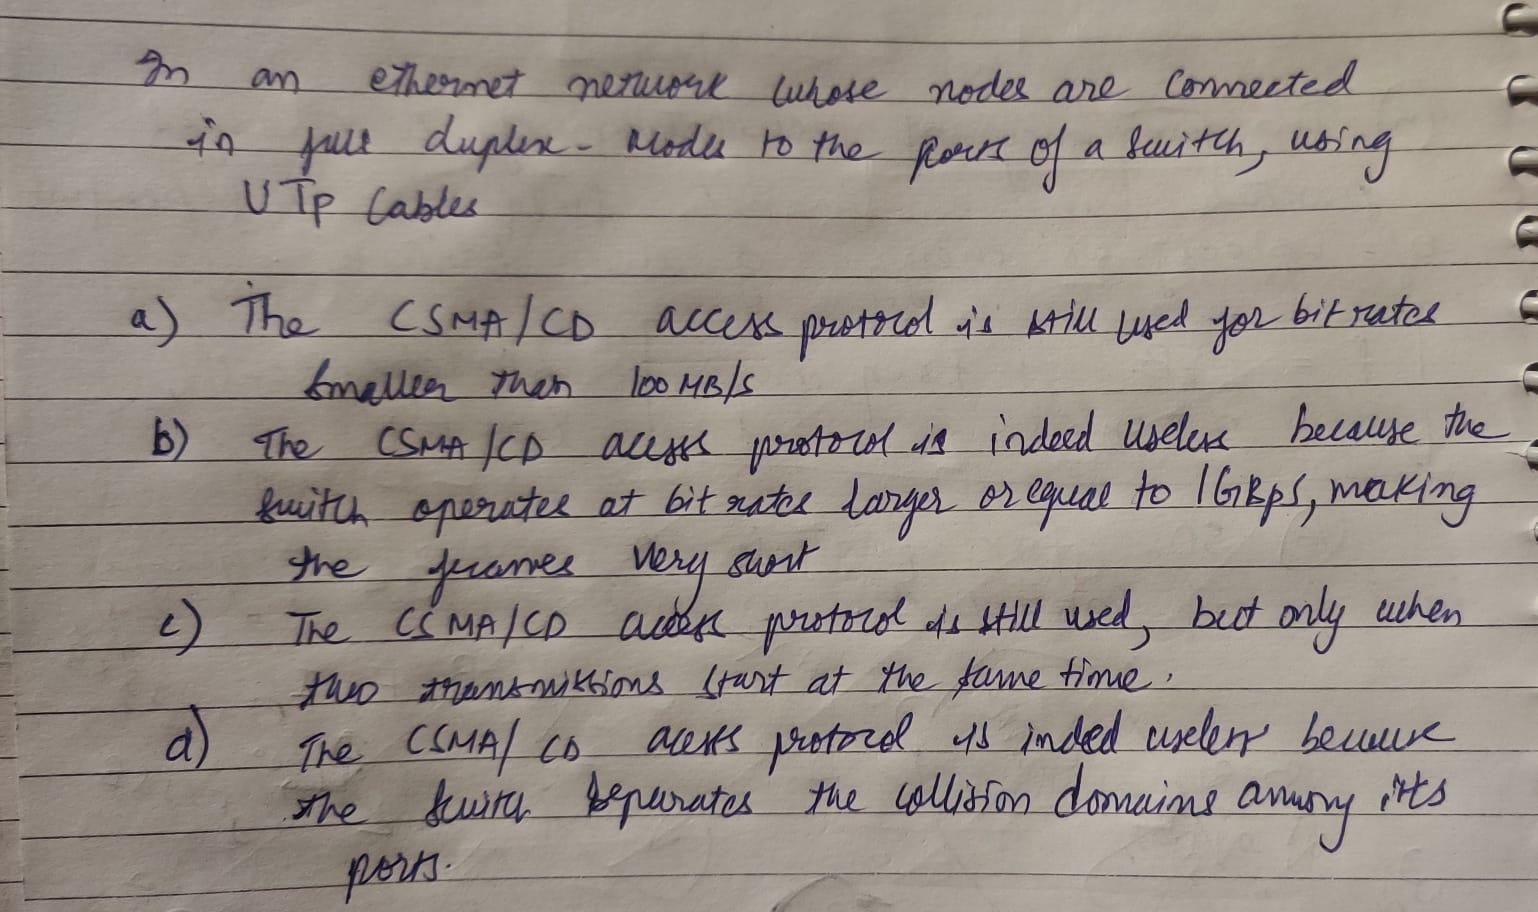 In an ethernet network whose nodes are connected
in full duplex - modes to the ports of a switch, using
UTp Cables
a) The CSMA/CD access protocol is still used for bit rates
smaller than 100 MB/S
b) The CSMA/CD access protocol is indeed useless because the
switch operates at bit rates larger or equal to 1GBps, making
the frames very short
c) The CSMA/CD access protocol is still used, but only when
two transmissions start at the same time.
d) The CSMA/CD acess protocol is inded useless because
the switch separates the collision domains among its
ports.